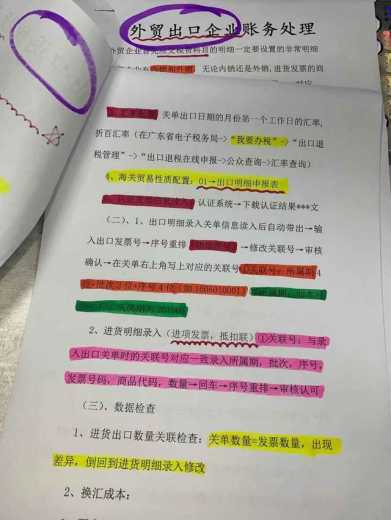 外贸出口企业账务处理
的明细一定要设置的非常明细
无论内销还是外销,进货发票的商
关单出口日期的月份第一个工作日的汇率,
折百汇率(在广东省电子税务局->"我要办税"->"出口退
税管理"->"出口退税在线申报->公众查询->汇率查询)
4、海关贸易性质配置:01→出口明细申报表
认证系统→下载认证结果***文
(二)、1、出口明细录入关单信息读入后自动带出→输
入出口发票号→序号重排→修改关联号→审核
确认→在关单右上角写上对应的关联号
2、进货明细录入(进项发票,抵扣联)①关联号:与录
入出口关单时的关联号对应一致录入所属期,批次,序号,
发票号码,商品代码,数量→回车→序号重排→审核认可
(三)、数据检查
1、进货出口数量关联检查:关单数量=发票数量,出现
差异,倒回到进货明细录入修改
2、换汇成本: